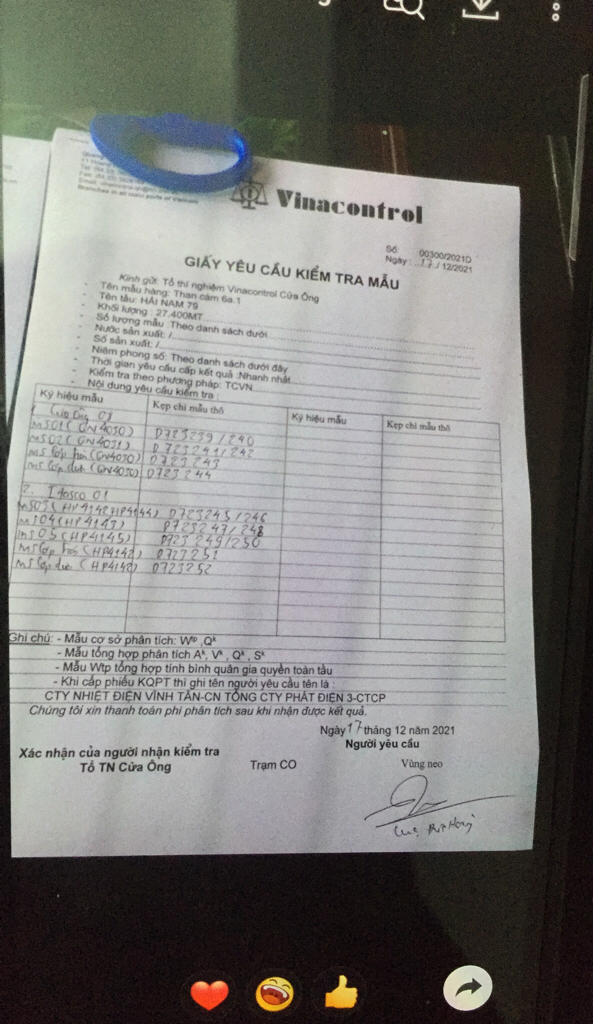 Branches in all main ports of Vietnam
Vinacontrol
Số: 00300/2021D
Ngày: 17/12/2021
GIẤY YÊU CẦU KIỂM TRA MẪU
Kính gửi: Tổ thí nghiệm Vinacontrol Cửa Ông
- Tên mẫu hàng: Than cám 6a.1
- Tên tàu: HẢI NAM 79
- Khối lượng : 27.400MT
- Số lượng mẫu :Theo danh sách dưới
- Nước sản xuất: /
- Số sản xuất: /
- Niêm phong số: Theo danh sách dưới đây
- Thời gian yêu cầu cấp kết quả :Nhanh nhất
- Kiểm tra theo phương pháp: TCVN
- Nội dung yêu cầu kiểm tra :
Ký hiệu mẫu Kẹp chì mẫu thô Ký hiệu mẫu Kẹp chì mẫu thô
1. Cửa Ông 01
MS01 (QN4030) 0723239/240
MS02 (QN4031) 0723241/242
MS lớp hai (QN4030) 0723243
MS lớp dưới (QN4030) 0723244
2. Itasco 01
MS03 (HP4142HP4144) 0723245/246
MS04 (HP4143) 0723247/248
MS05 (HP4145) 0723249/250
MS lớp hai (HP4142) 0723251
MS lớp dưới (HP4142) 0723252
Ghi chú: - Mẫu cơ sở phân tích: Wtp ,Qk
- Mẫu tổng hợp phân tích Ak, Vk , Qk , Sk
- Mẫu Wtp tổng hợp tính bình quân gia quyền toàn tàu
- Khi cấp phiếu KQPT thì ghi tên người yêu cầu tên là :
CTY NHIỆT ĐIỆN VĨNH TÂN-CN TỔNG CTY PHÁT ĐIỆN 3-CTCP
Chúng tôi xin thanh toán phí phân tích sau khi nhận được kết quả.
Ngày 17 tháng 12 năm 2021
Xác nhận của người nhận kiểm tra Người yêu cầu
Tổ TN Cửa Ông Trạm CO Vùng neo